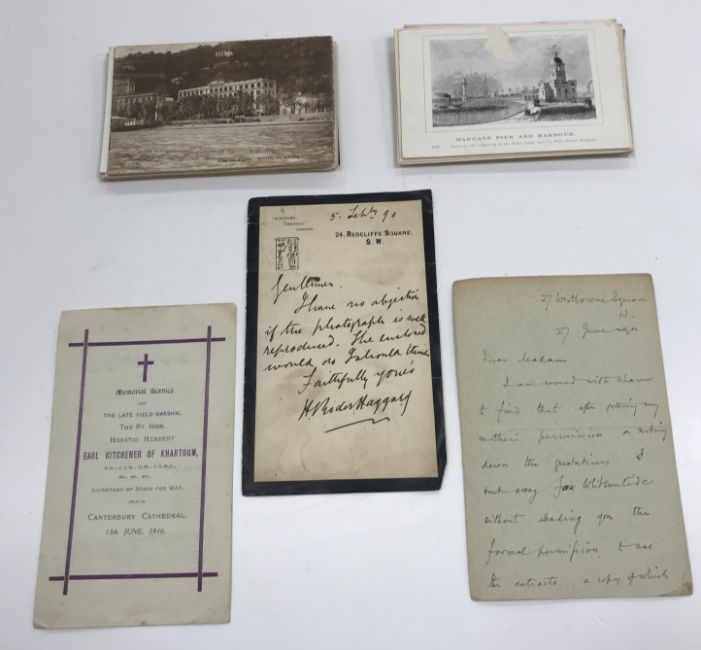 MARGATE PIER AND HARBOUR.
5. Feby 90
LONDON.
24, REDCLIFFE SQUARE,
S. W.
Gentlemen.
I have no objection
if the photograph is well
reproduced. The enclosed
would do I should think
Faithfully yours
H. Rider Haggard
Memorial Service
FOR
THE LATE FIELD-MARSHAL
THE RT. HON.
HORATIO HERBERT
EARL KITCHENER OF KHARTOUM,
SECRETARY OF STATE FOR WAR,
HELD IN
CANTERBURY CATHEDRAL
13th JUNE, 1916.
27 Westbourne Square
W.
27 June
Dear Madam
I am covered with shame
to find that after getting my
mother's permission & noting
down the quotations I
went away for Whitsuntide
without sending you the
formal permission to use
the extracts, a copy of which